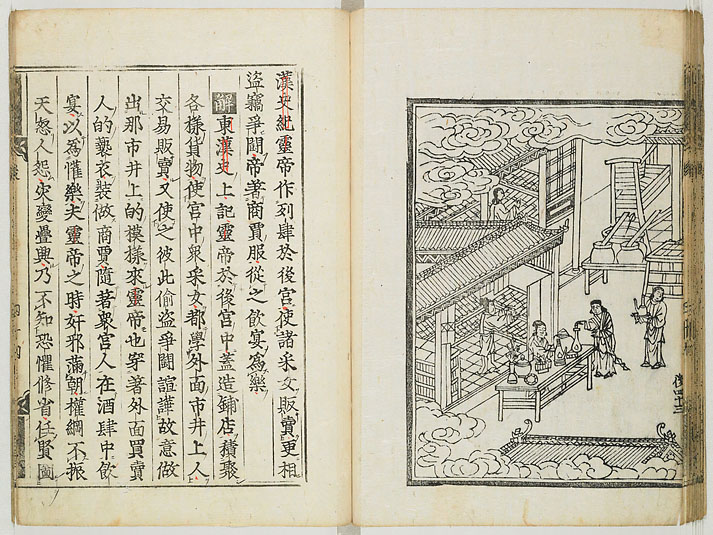 漢史紀靈帝作列肆於後宮使諸采女販賣更相
盜竊爭鬪帝著商賈服從之飲宴為樂
解東漢史上記靈帝於後宮中蓋造鋪店積聚
各樣貨物使宮中衆采女都學外面市井上人
交易販賣又使之彼此偷盜爭鬪諠譁故意做
出那市井上的模樣來靈帝也穿著外面買賣
人的褻衣裝做商賈隨著衆宮人在酒肆中飲
宴以為懽樂夫靈帝之時奸邪滿朝權綱不振
天怒人怨灾變疊興乃不知恐懼修省任賢圖